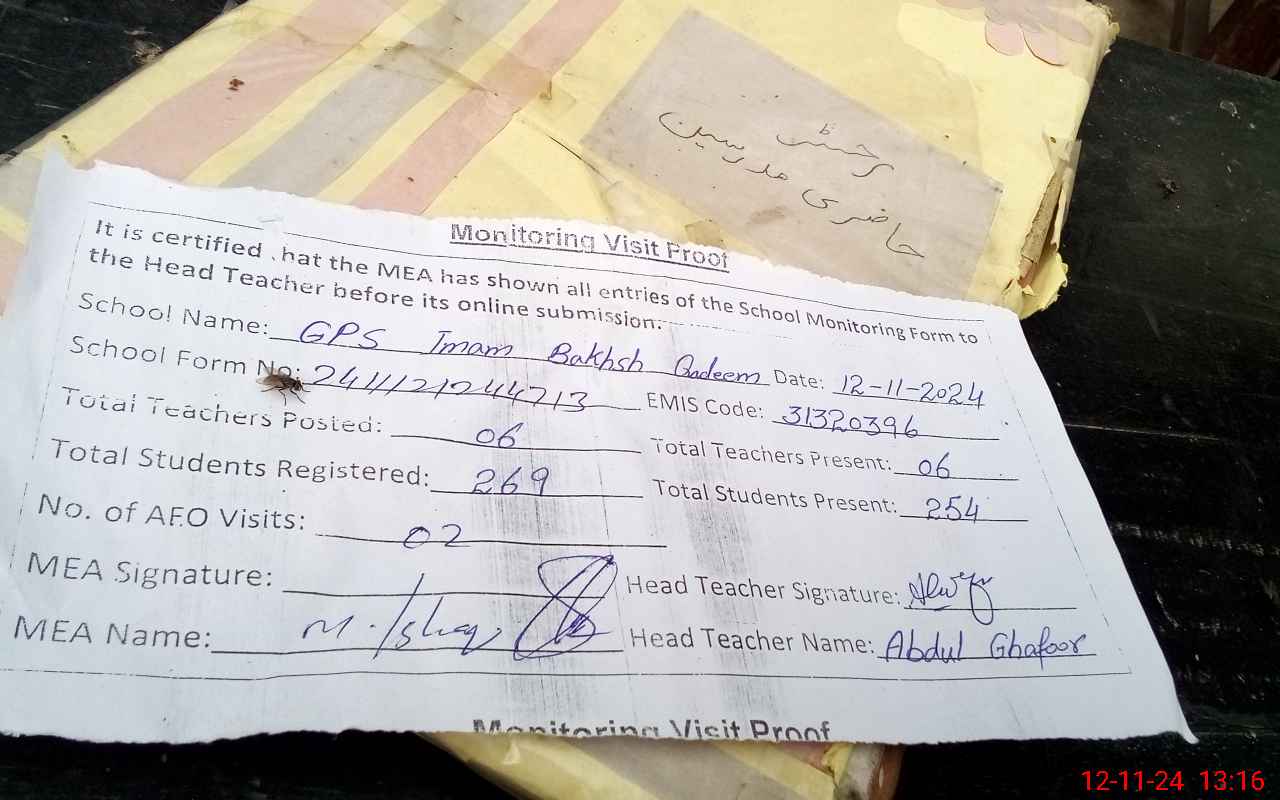 رجسٹر
حاضری مدرسین
Monitoring Visit Proof
It is certified hat the MEA has shown all entries of the School Monitoring Form to
the Head Teacher before its online submission.
School Name: GPS Imam Bakhsh Qadeem Date: 12-11-2024
School Form No: 2411121244713 EMIS Code: 31320396
Total Teachers Posted: 06 Total Teachers Present: 06
Total Students Registered: 269 Total Students Present: 254
No. of AEO Visits: 02
MEA Signature: Head Teacher Signature:
MEA Name: M. Ishaq Head Teacher Name: Abdul Ghafoor
Monitoring Visit Proof
12-11-24 13:16